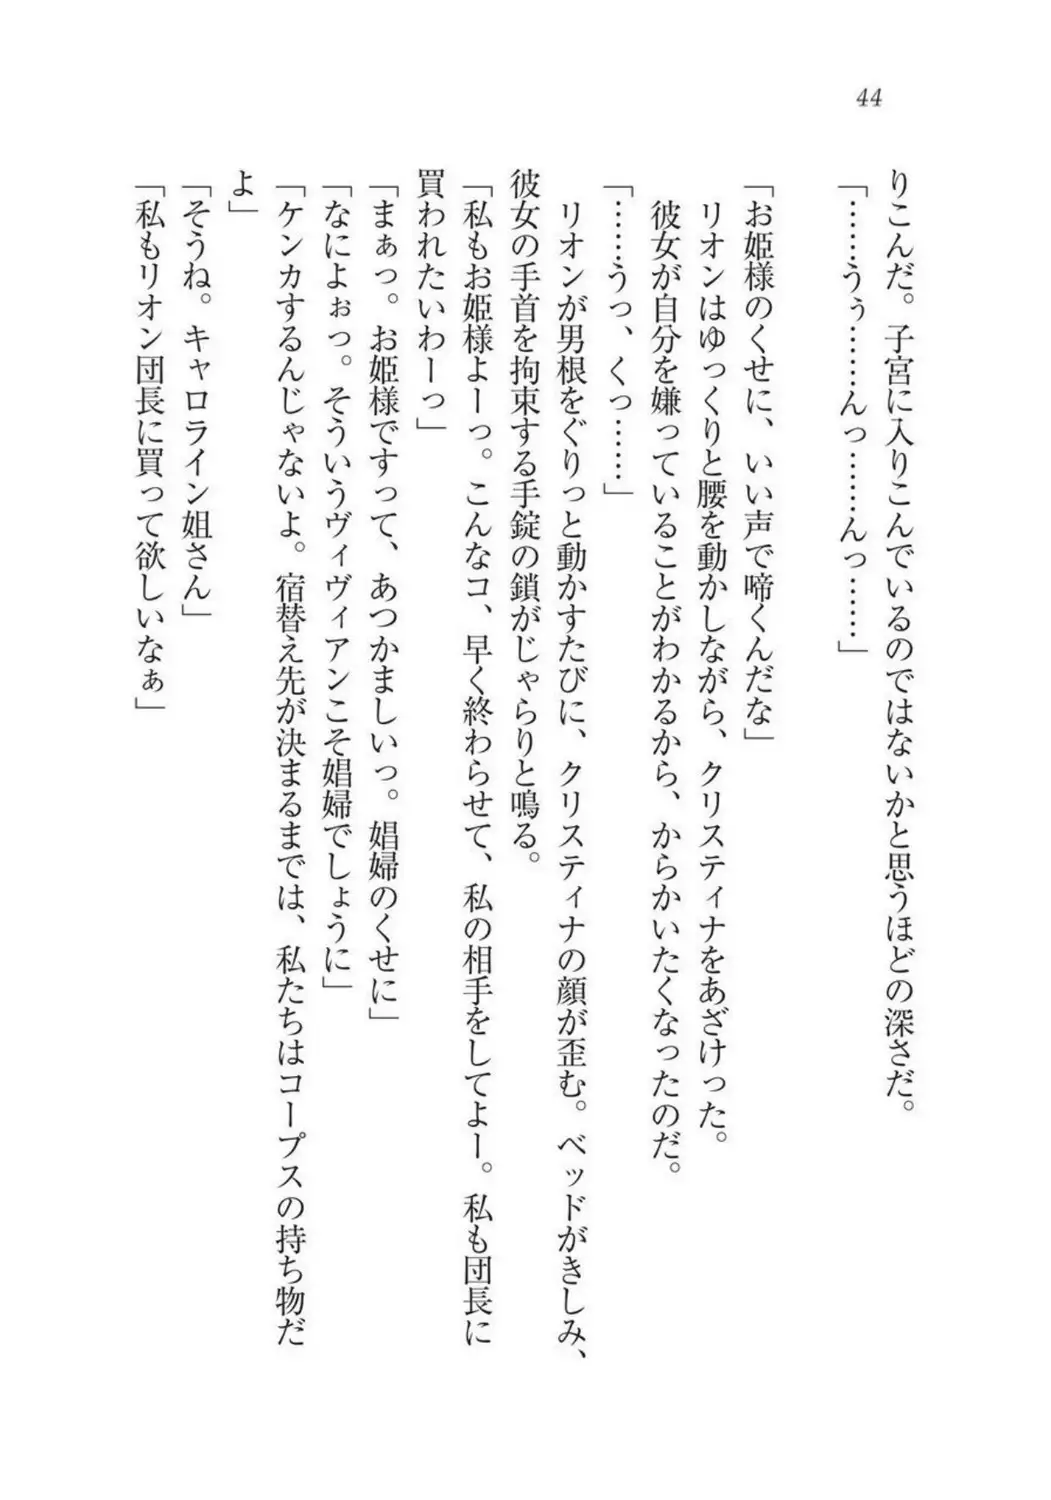 44
りこんだ。子宮に入りこんでいるのではないかと思うほどの深さだ。
「……うぅ………んっ………んっ……」
「お姫様のくせに、いい声で啼くんだな」
リオンはゆっくりと腰を動かしながら、クリスティナをあざけった。
彼女が自分を嫌っていることがわかるから、からかいたくなったのだ。
「……うっ、くっ……」
リオンが男根をぐりっと動かすたびに、クリスティナの顔が歪む。ベッドがきしみ、
彼女の手首を拘束する手錠の鎖がじゃらりと鳴る。
「私もお姫様よーっ。こんなコ、早く終わらせて、私の相手をしてよー。私も団長に
買われたいわーっ」
「まぁっ。お姫様ですって、あつかましいっ。娼婦のくせに」
「なによぉっ。そういうヴィヴィアンこそ娼婦でしょうに」
「ケンカするんじゃないよ。宿替え先が決まるまでは、私たちはコープスの持ち物だ
よ」
「そうね。キャロライン姐さん」
「私もリオン団長に買って欲しいなぁ」